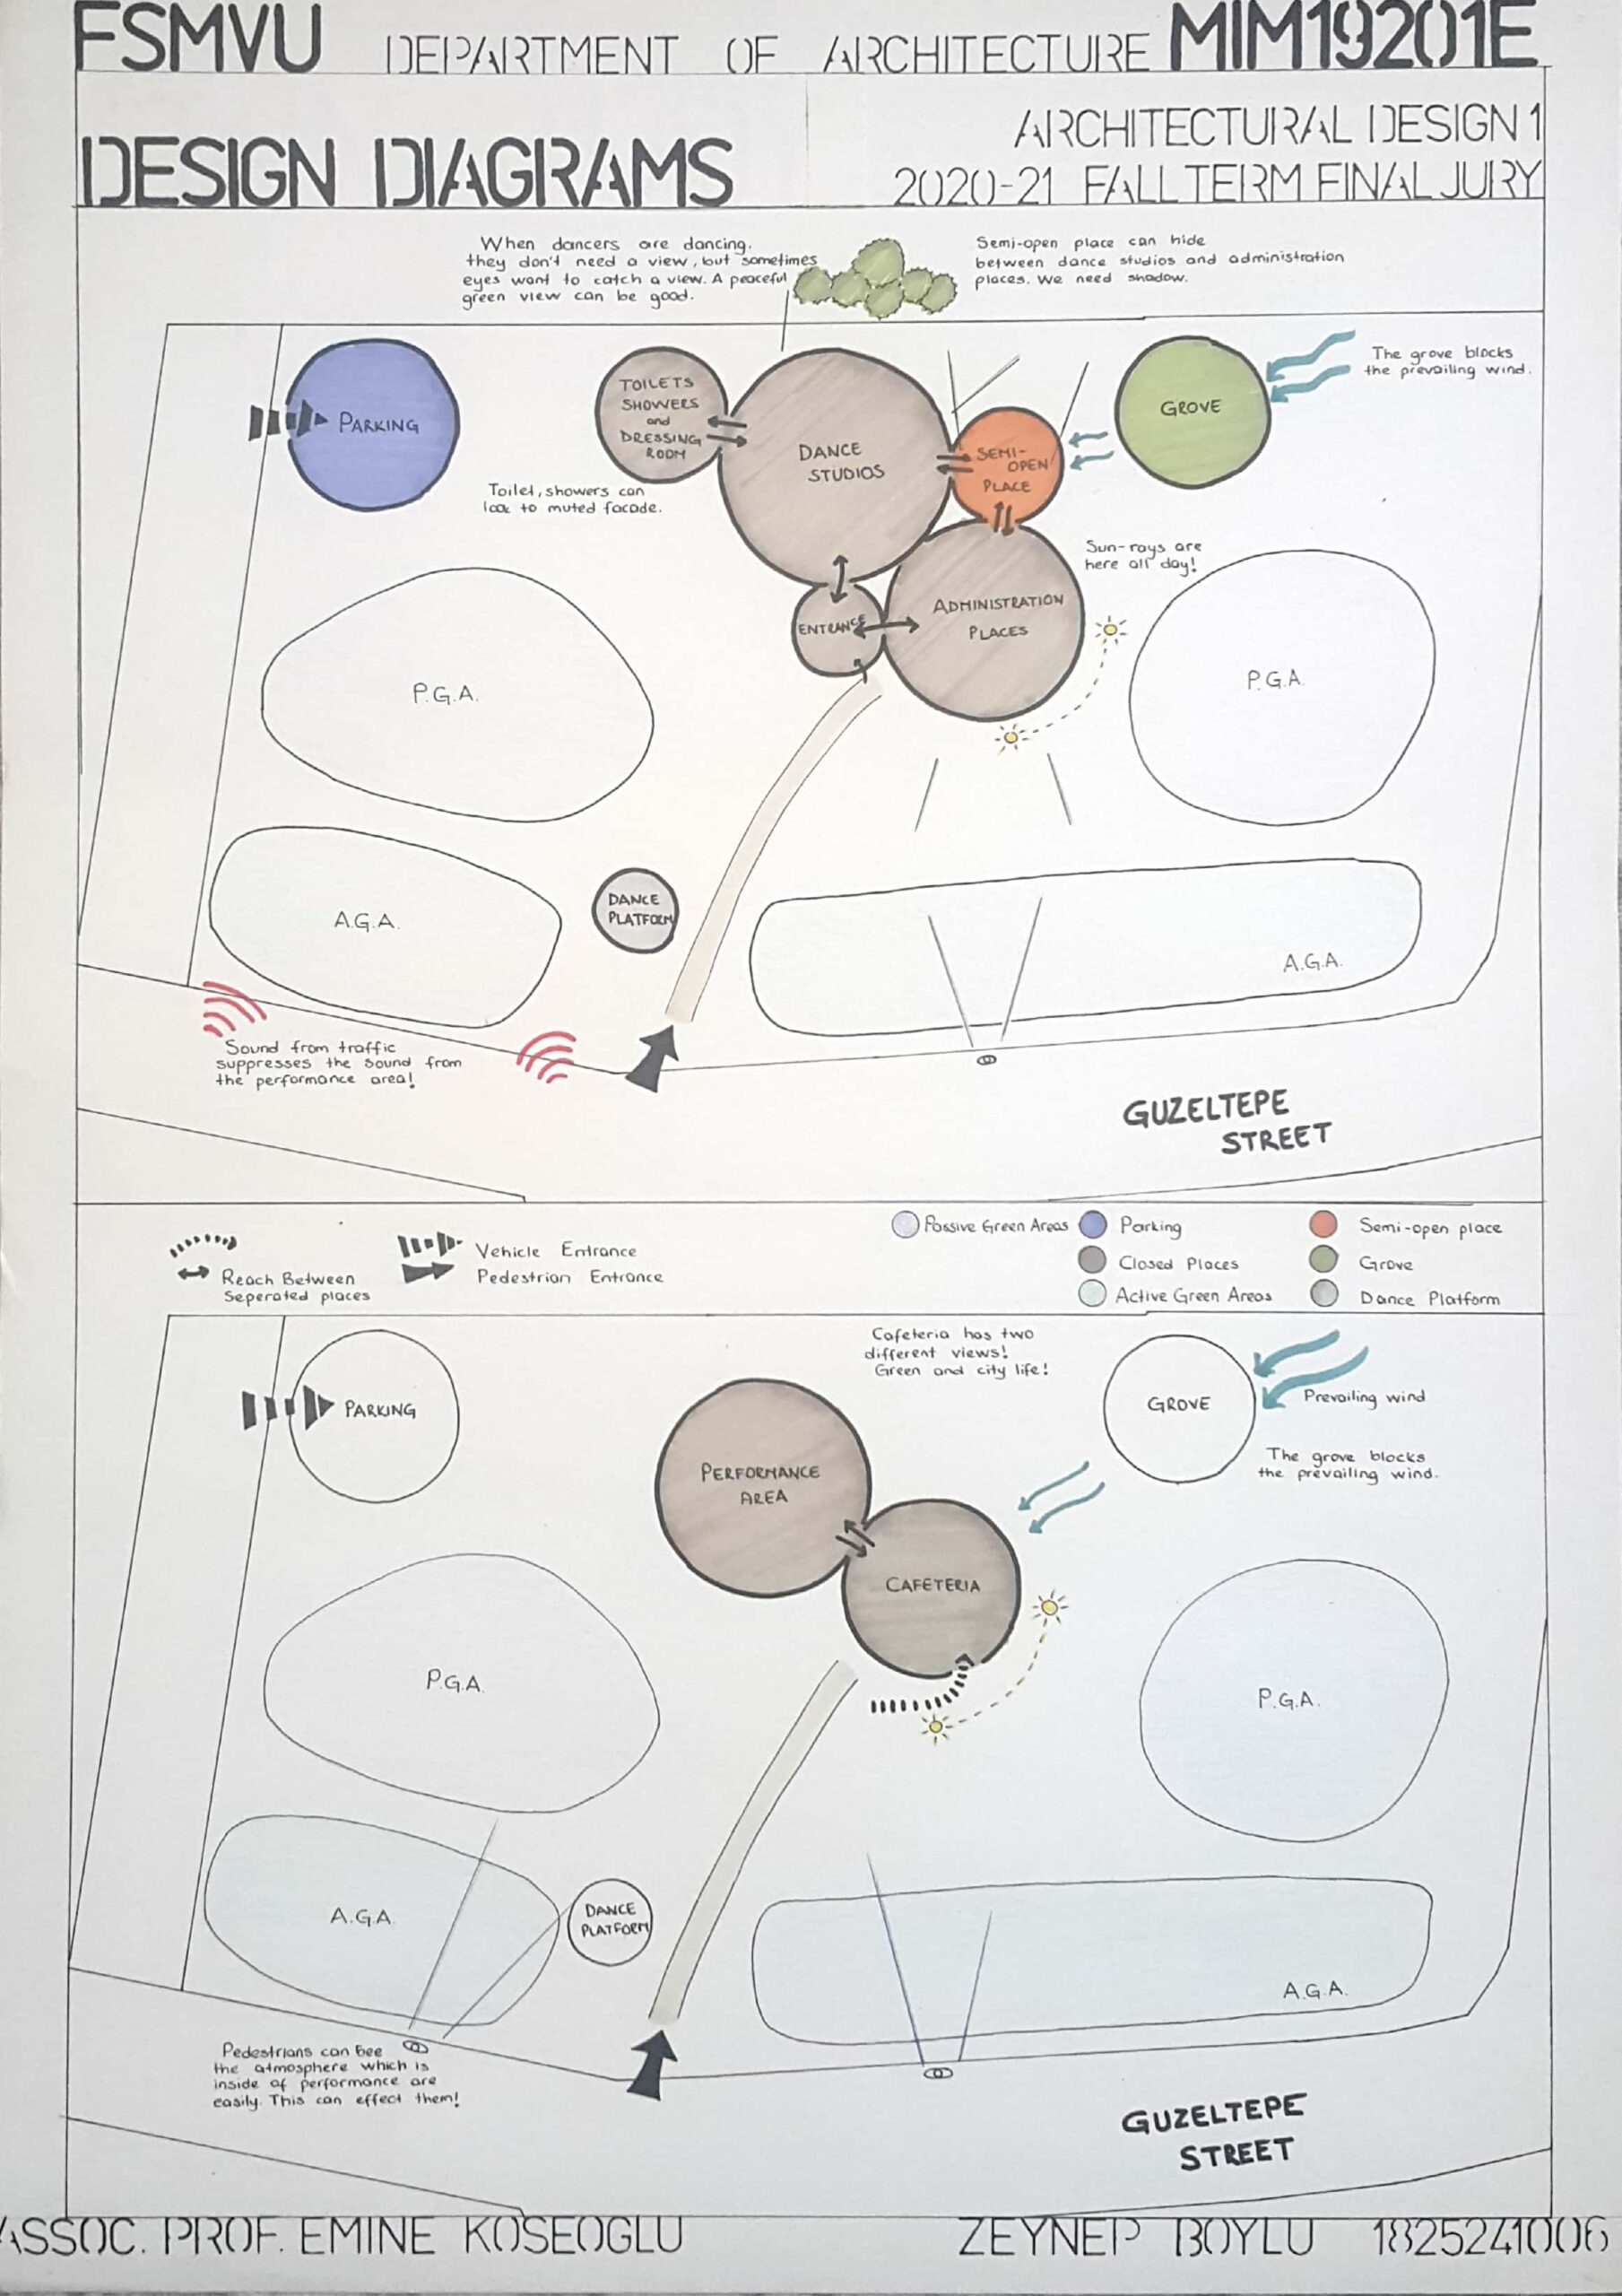 FSMVU DEPARTMENT OF ARCHITECTURE MIM19201E
DESIGN DIAGRAMS
ARCHITECTURAL DESIGN 1
2020-21 FALL TERM FINAL JURY
When dancers are dancing.
they don't need a view, but sometimes
eyes want to catch a view. A peaceful
green view can be good.
Semi-open place can hide
between dance studios and administration
places. We need shadow.
PARKING
TOILETS
SHOWERS
and
DRESSING
ROOM
DANCE
STUDIOS
SEMI-
OPEN
PLACE
GROVE
The grove blocks
the prevailing wind.
Toilet, showers can
look to muted facade.
Sun-rays are
here all day!
ENTRANCE
ADMINISTRATION
PLACES
P.G.A.
P.G.A.
A.G.A.
DANCE
PLATFORM
A.G.A.
Sound from traffic
suppresses the sound from
the performance area!
GUZELTEPE
STREET
Reach Between
Seperated places
Vehicle Entrance
Pedestrion Entrance
Passive Green Areas
Parking
Semi-open place
Closed Places
Grove
Active Green Areas
Dance Platform
Cafeteria has two
different views!
Green and city life!
PARKING
PERFORMANCE
AREA
GROVE
Prevailing wind
The grove blocks
the prevailing wind.
CAFETERIA
P.G.A.
P.G.A.
A.G.A.
DANCE
PLATFORM
A.G.A.
Pedestrians can bee
the atmosphere which is
inside of performance are
easily. This can effect them!
GUZELTEPE
STREET
ASSOC. PROF. EMINE KOSEOGLU
ZEYNEP BOYLU 1825241006